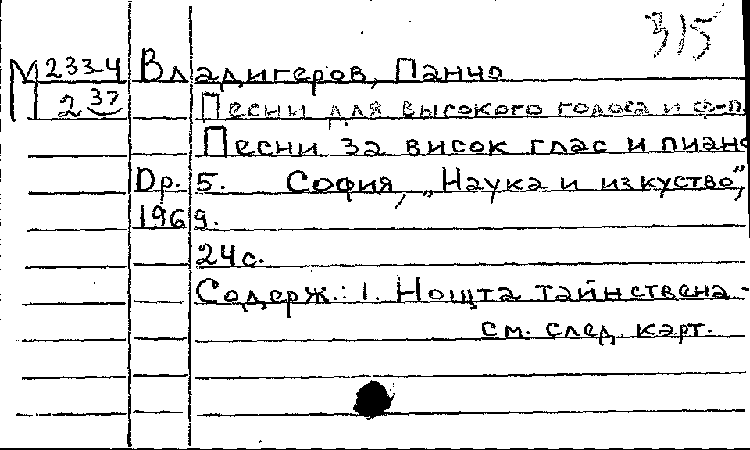 315
М 233-4 Владигеров, Панчо
2 37 Песни для высокого голоса и ф-п.
Песни за висок глас и пиано
Ор. 5. София, „Наука и изкуство",
1969.
24 с.
Содерж.: 1. Нощта тайнствена -
см. след. карт.